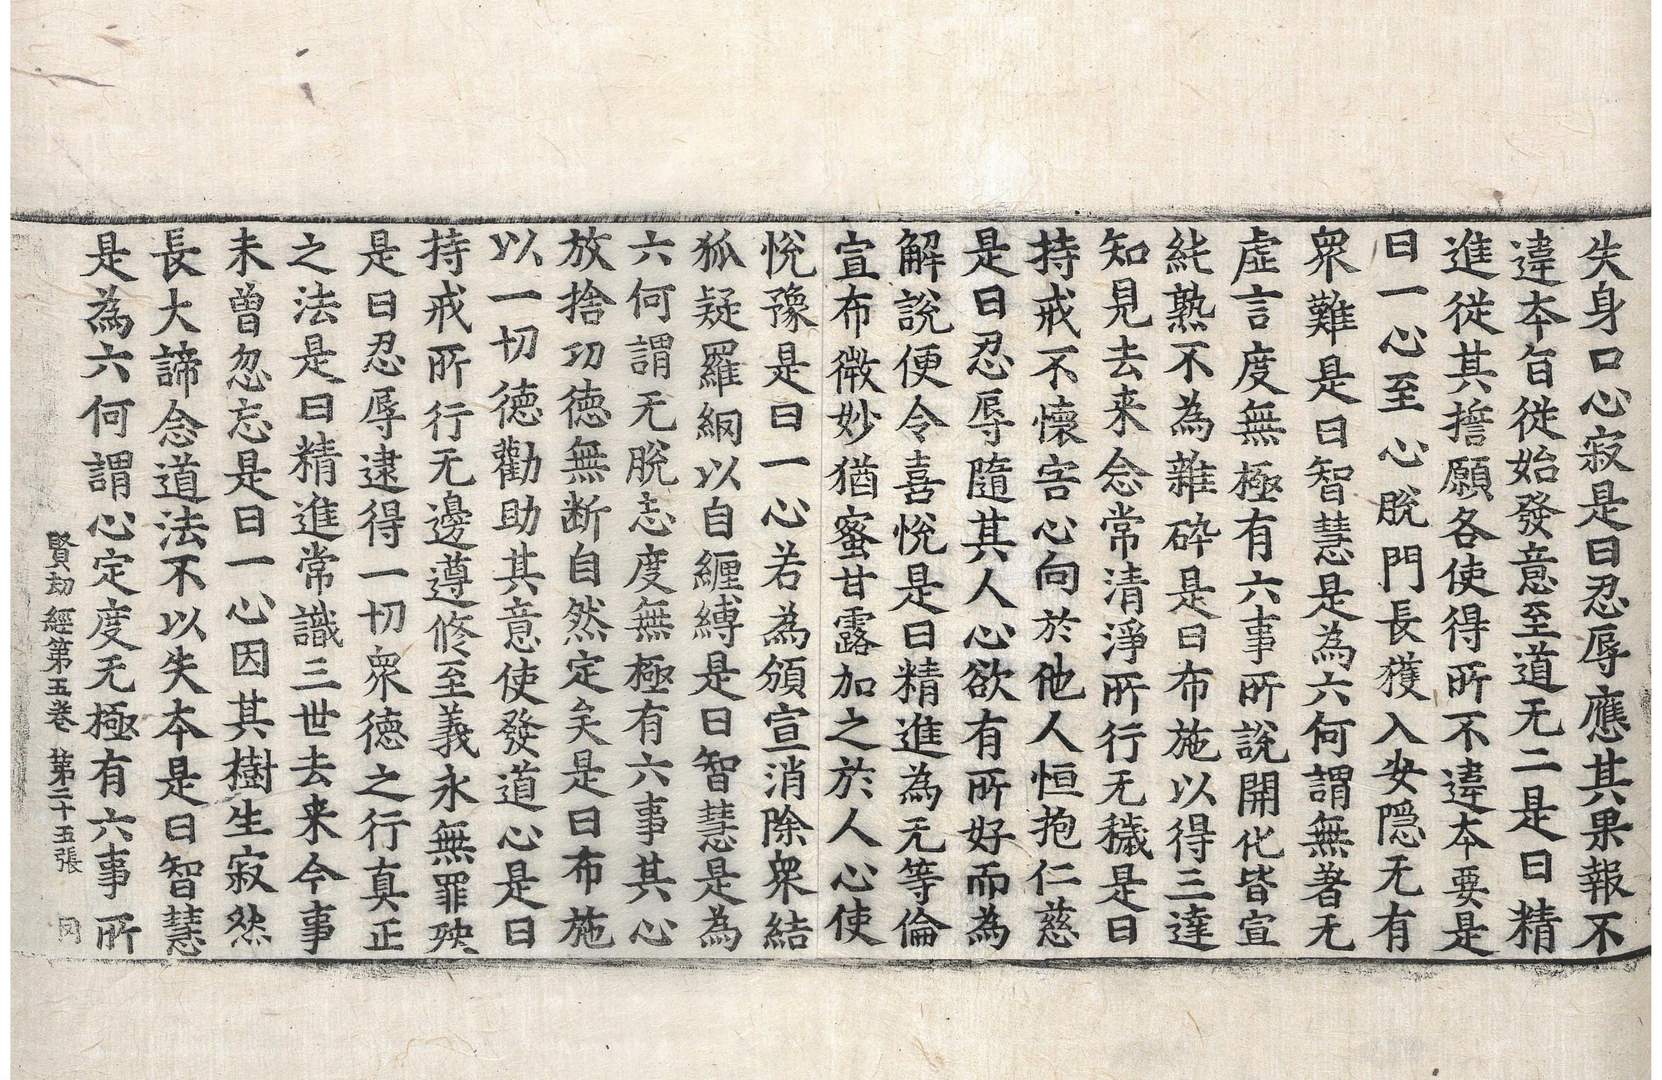 失身口心寂是曰忍辱應其果報不
違本旨從始發意至道无二是曰精
進從其擔願各使得所不違本要是
曰一心至心脫門長獲入安隱无有
衆難是曰智慧是為六何謂無著无
虛言度無極有六事所說開化皆宣
純熟不為雜碎是曰布施以得三達
知見去来念常清淨所行无穢是曰
持戒不懷害心向於他人恒抱仁慈
是曰忍辱隨其人心欲有所好而為
解說便令喜悅是曰精進為无等倫
宣布微妙猶蜜甘露加之於人心使
悅豫是曰一心若為頒宣消除衆結
狐疑羅網以自纏縛是曰智慧是為
六何謂无脫志度無極有六事其心
放捨功德無断自然定矣是曰布施
以一切德勸助其意使發道心是曰
持戒所行无邊遵修至義永無罪殃
是曰忍辱逮得一切衆德之行真正
之法是曰精進常識三世去来今事
未曾忽忘是曰一心因其樹生寂然
長大諦念道法不以失本是曰智慧
是為六何謂心定度无極有六事所
賢劫經第五卷 第二十五張 罔